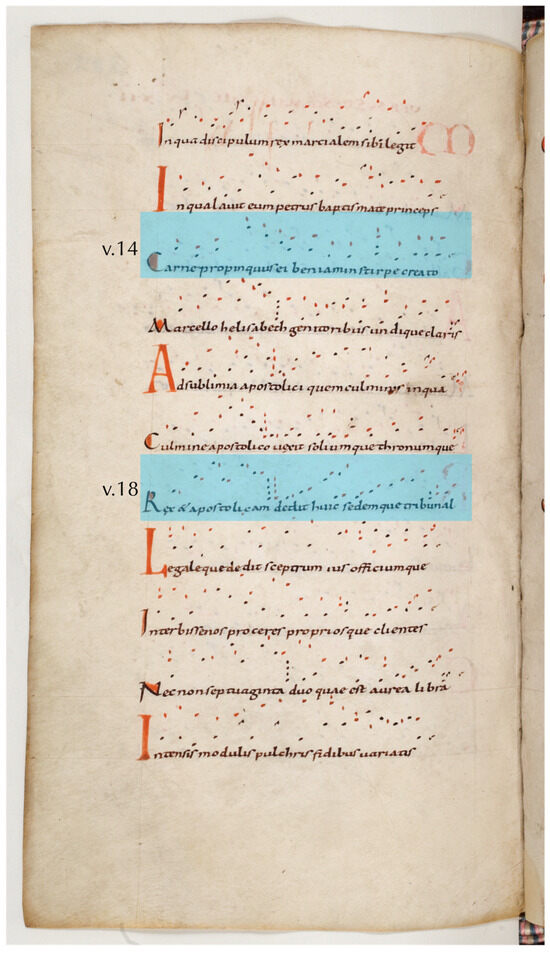 In qua discipulum rex martialem sibi legit
In qua lavit eum petrus baptismate princeps
v.14 Carne propinquus ei beniamin stirpe creato
Marcello helisabeth genitoribus undique claris
Ad sublimia apostolici quem culminis in qua
Culmine apostolico vexit soliumque thronumque
v.18 Rex & apostolicam dedit huic sedemque tribunal
Legaleque dedit sceptrum ius officiumque
Inter bissenos proceres propriosque clientes
Nec non septuaginta duo quae est aurea libra
Intensis modulis pulchris fidibus variatis